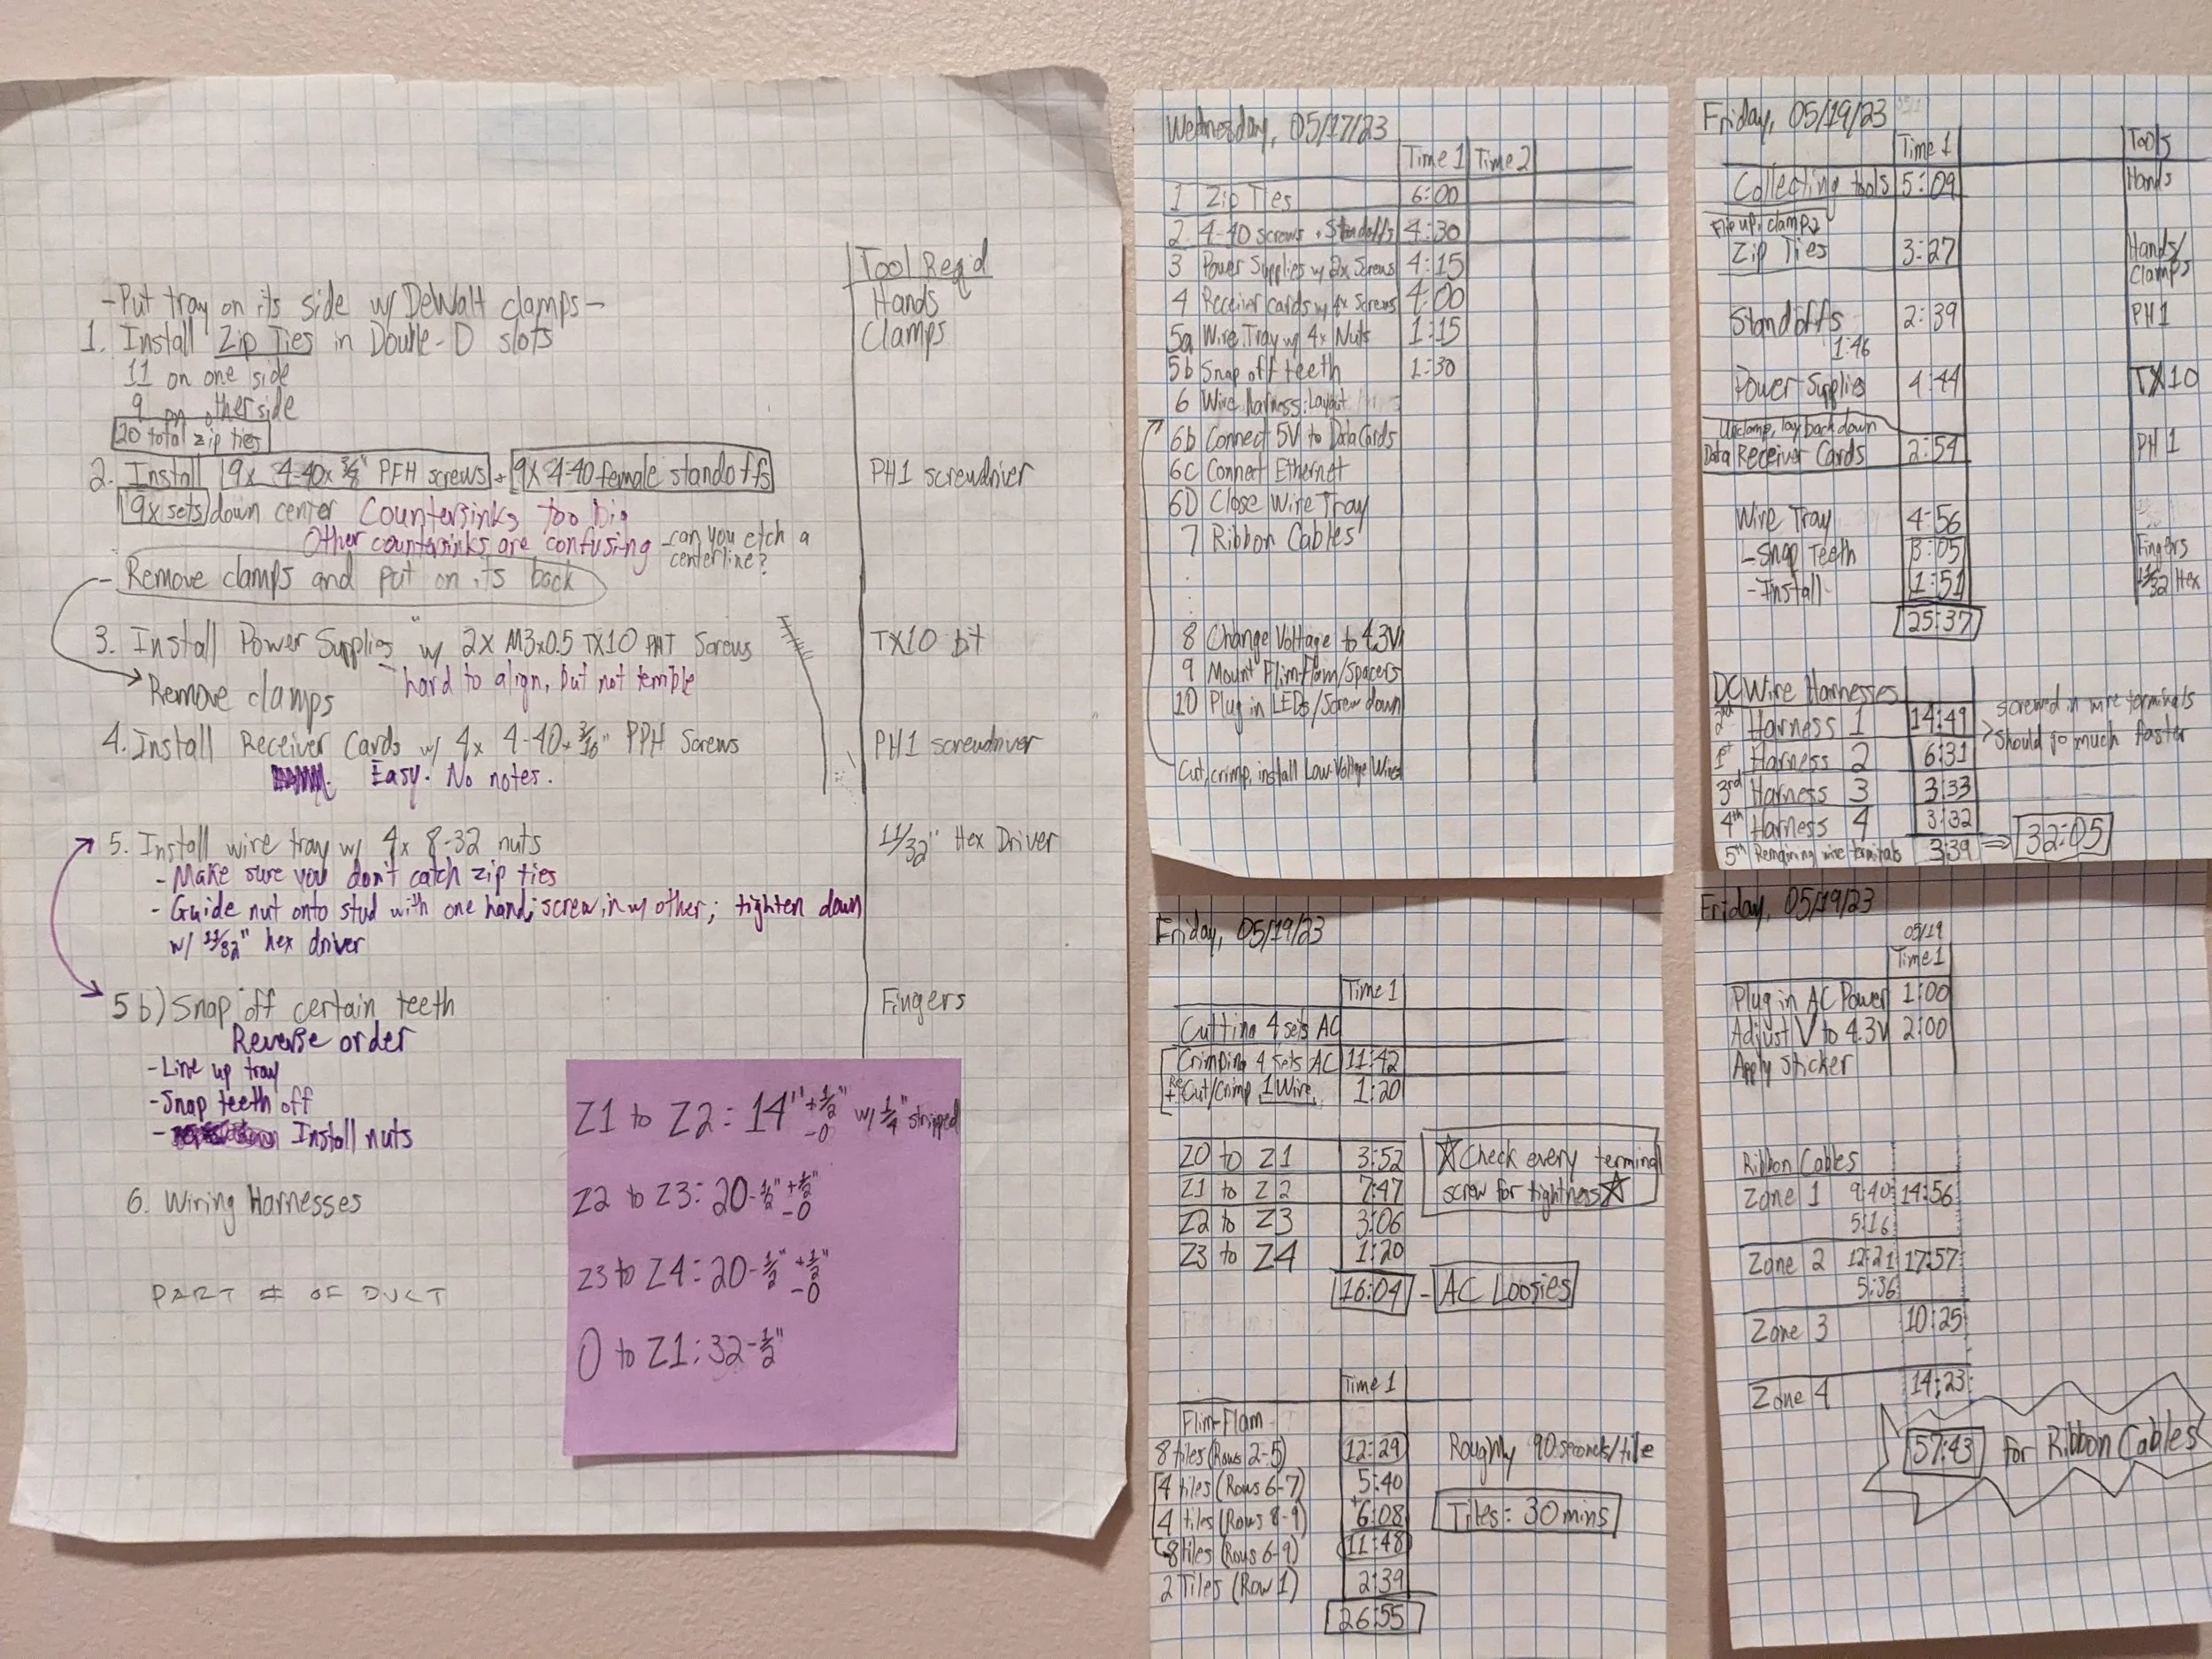 Tool Req'd
-Put tray on its side w/ DeWalt clamps-
Hands
1. Install Zip Ties in Double-D slots
Clamps
11 on one side
9 on other side
20 total zip ties
2. Install 9x 4-40x 3/8" PFH screws + 9x 4-40 female standoffs
PH1 screwdriver
9x sets down center Countersinks too big
Other countersinks are confusing -can you etch a centerline?
- Remove clamps and put on its back
3. Install Power Supplies w/ 2x M3x0.5 TX10 PHT Screws
TX10 bit
hard to align, but not terrible
Remove clamps
4. Install Receiver Cards w/ 4x 4-40x 3/16" PPH Screws
PH1 screwdriver
Easy. No notes.
5. Install wire tray w/ 4x 8-32 nuts
11/32" Hex Driver
- Make sure you don't catch zip ties
- Guide nut onto stud with one hand; screw in w/ other; tighten down
w/ 11/32" hex driver
5 b) Snap off certain teeth
Fingers
Reverse order
-Line up tray
-Snap teeth off
- Install nuts
6. Wiring Harnesses
PART # OF DUCT
Z1 to Z2: 14" +1/2" -0 w/ 1/4" stripped
Z2 to Z3: 20-1/2" +1/2" -0
Z3 to Z4: 20-1/2" +1/2" -0
0 to Z1: 32-1/2"
Wednesday, 05/17/23
Time 1 Time 2
1 Zip Ties 6:00
2 4-40 screws + Standoffs 4:30
3 Power Supplies w/ 2x Screws 4:15
4 Receiver cards w/ 4x screws 4:00
5a Wire Tray w/ 4x Nuts 1:15
5b Snap off teeth 1:30
6 Wire harness: Layout
6b Connect 5V to Data Cards
6C Connect Ethernet
6D Close Wire Tray
7 Ribbon Cables
8 Change Voltage to 4.3V
9 Mount Flim-Flam/Spacers
10 Plug in LEDs/Screw down
Cut, crimp, install Low-Voltage Wires
Friday, 05/19/23
Time 1
Tools
Collecting tools 5:09 Hands
Flip up, clamp
Zip Ties 3:27 Hands/
Clamps
Standoffs 2:39 PH1
1:46
Power Supplies 4:44 TX10
Unclamp, lay back down
Data Receiver Cards 2:54 PH1
Wire Tray 4:56
-Snap Teeth 3:05 Fingers
-Install 1:51 11/32 Hex
25:37
DC Wire Harnesses
2nd Harness 1 14:49
1st Harness 2 6:31
screwed in wire terminals
should go much faster
3rd Harness 3 3:33
4th Harness 4 3:32
5th Remaining wire terminals 3:39 ⇒ 32:05
Friday, 05/19/23
Time 1
Cutting 4 sets AC
Crimping 4 sets AC 11:42
+ Re Cut/Crimp 1 Wire 1:20
Z0 to Z1 3:52
Z1 to Z2 7:47
Z2 to Z3 3:06
Z3 to Z4 1:20
☆Check every terminal
screw for tightness☆
16:04 - AC Loosies
Time 1
Flim-Flam
8 tiles (Rows 2-5) 12:29
Roughly 90 seconds/tile
4 tiles (Rows 6-7) 5:40
4 tiles (Rows 8-9) +6:08
Tiles: 30 mins
8 tiles (Rows 6-9) 11:48
2 Tiles (Row 1) 2:39
26:55
Friday, 05/19/23
05/19
Time 1
Plug in AC Power 1:00
Adjust V to 4.3V 2:00
Apply Sticker
Ribbon Cables
Zone 1 9:40 14:56
5:16
Zone 2 12:21 17:57
5:36
Zone 3 10:25
Zone 4 14:23
57:43 for Ribbon Cables